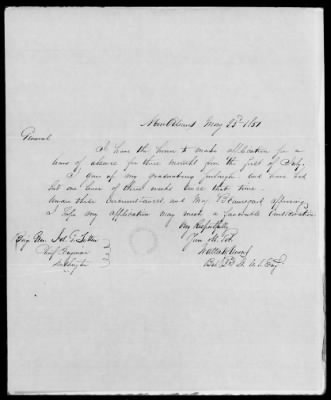 New Orleans May 23d 1851
General
I have the honor to make application for a
leave of absence for three months from the first of July.
I gave up my graduating furlough and have had
but one leave of three weeks since that time.
Under these circumstances, and Maj Beauregard approving,
I hope my application may meet a favorable consideration
Very Respectfully
Your Ob. Svt.
Bvt 2d Lt. U.S. Eng
Brig. Gen. Jos. G. Totten
Chief Engineer
Washington